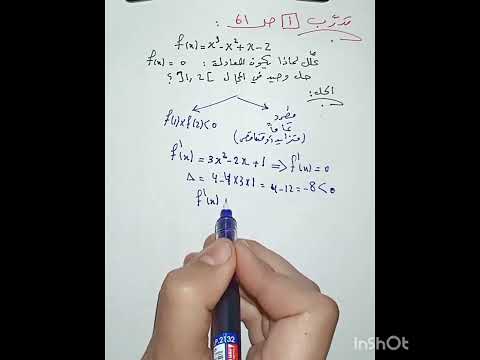 تدرّب 1 ص 61
f(x) = x³-x²+x-2
علّل لماذا يكون للمعادلة : f(x) = 0
حل وحيد في المجال ]1,2[ ؟
الحل:
مطرد
تماماً
(متزايد أو متناقص)
f(1)xf(2)<0
f'(x) = 3x²-2x+1 ⇒ f'(x) = 0
Δ = 4-4x3x1 = 4-12=-8<0
f'(x)
P.2132
InShOt